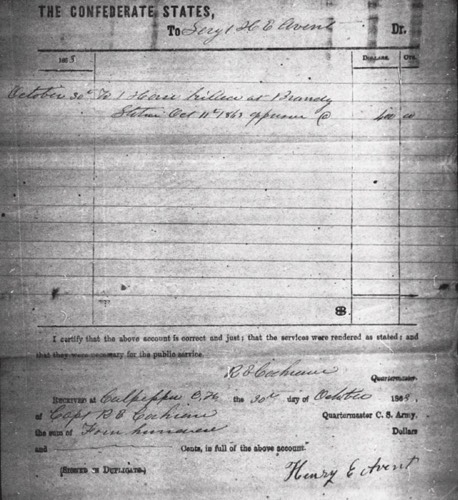 THE CONFEDERATE STATES,
To Sergt H E Avent Dr.
1863 DOLLARS. CTS.
October 30th To 1 Horse killed at Brandy
Station Oct 11th 1863 @ 400 00
I certify that the above account is correct and just; that the services were rendered as stated; and
that they were necessary for the public service.
R E Cochrane
Quartermaster.
RECEIVED at Culpepper C. H. the 30th day of October 1863,
of Capt R E Cochrane Quartermaster C. S. Army,
the sum of Four hundred Dollars
and Cents, in full of the above account.
(SIGNED IN DUPLICATE.)
Henry E Avent